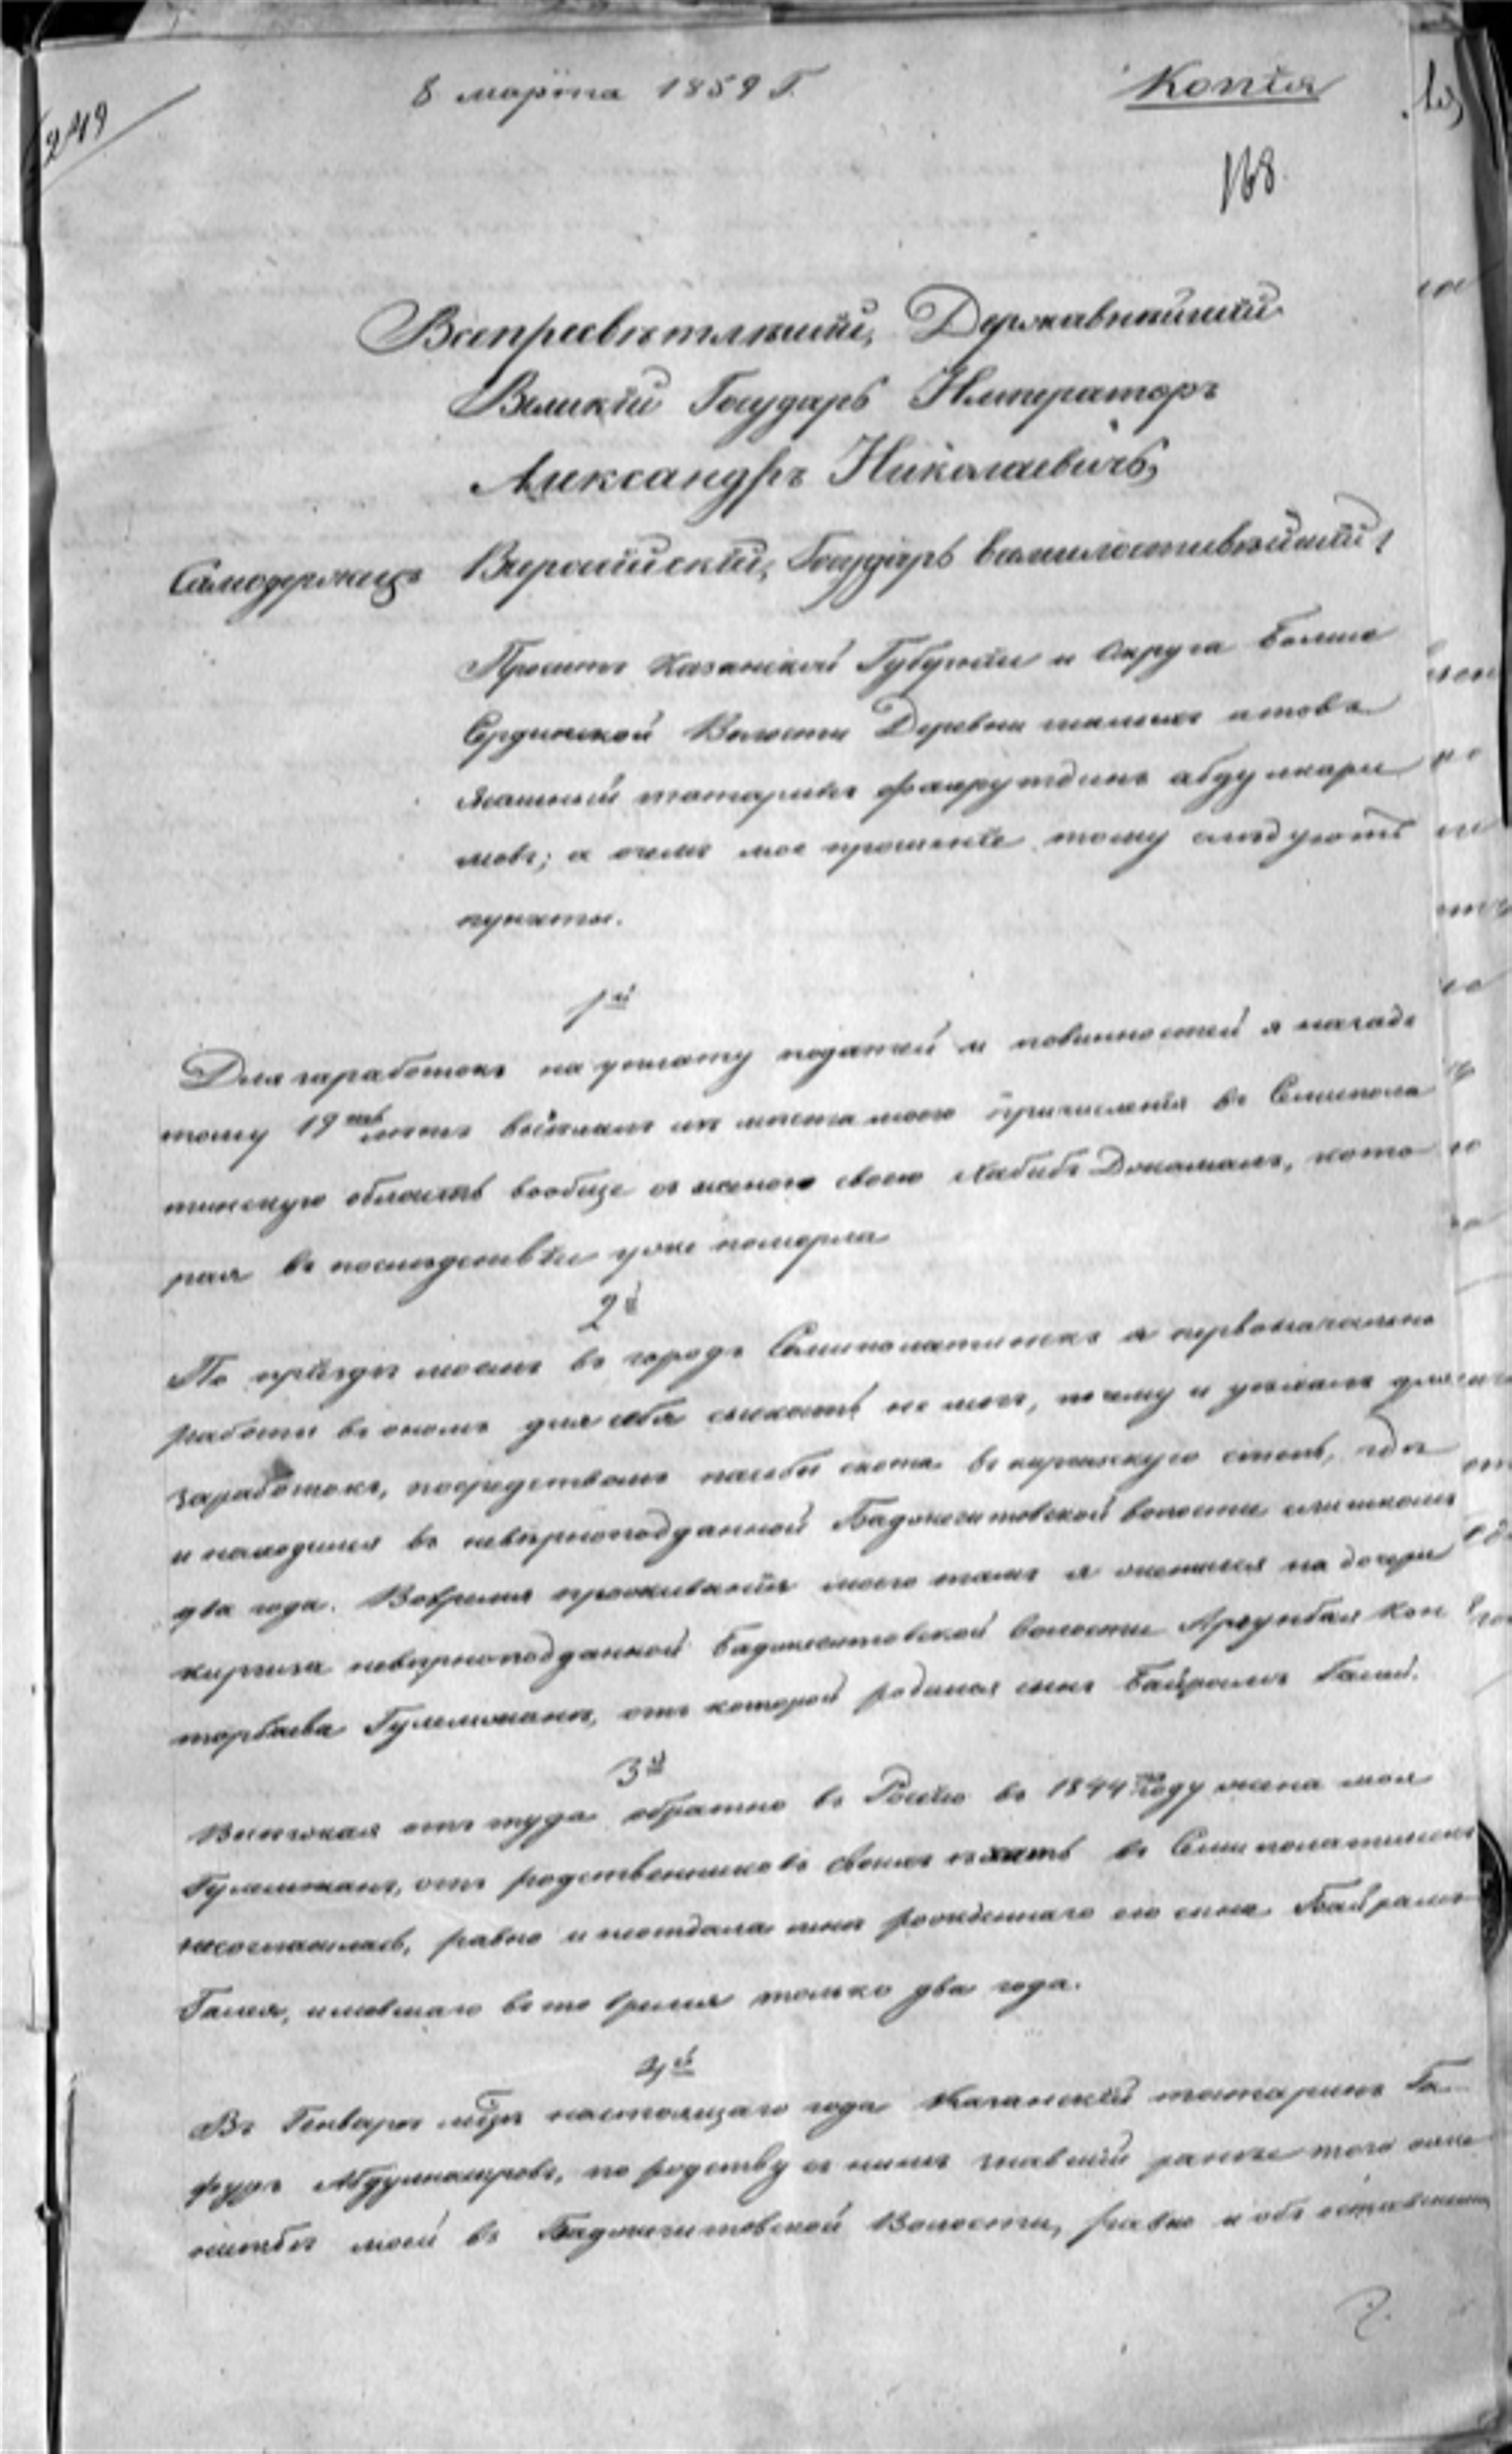 8 марта 1859 Г.
Копія
249
168
Всепресвѣтлѣйшій, Державнѣйшій
Великій Государь Императоръ
Александръ Николаевичъ,
Самодержецъ Всероссійскій, Государь всемилостивѣйшій!
Проситъ Казанской Губерніи и Округа Больше
Сердинской Волости Деревни
татаринъ Фахрутдинъ абдулкари
мовъ; а о чемъ мое прошеніе тому слѣдуютъ
пункты.
1й
Для заработокъ на уплату податей и повинностей я назадъ
тому 19ть лѣтъ выѣхалъ изъ мѣста моего причисленія въ Семипола
тинскую область вообще съ женою своею Хабибъ Джамалъ, кото
рая въ послѣдствіи уже померла
2й
По пріѣздѣ моемъ въ городъ Семиполатинскъ я первоначально
работы въ ономъ для себя сыскать не могъ, почему и уѣхалъ для
заработокъ, посредствомъ пасьбы скота въ киргизскую степь, гдѣ
и находился въ невѣрноподданной Баджигитовской волости слишкомъ
два года. Вовремя проживанія моего тамъ я женился на дочери
киргиза невѣрноподданной Баджигитовской волости Аргунбая Кон
торбаева Гулемжанъ, отъ которой родился сынъ Байрамъ Галій.
3й
Выѣзжая отъ туда обратно въ Росію въ 1844мъ году жена моя
Гулемжанъ, отъ родственниковъ своихъ ѣхать въ Семиполатинскъ
несогласилась, равно и неотдала мнѣ рожденнаго ею сына Байрамъ
Галея, имѣвшаго въ то время только два года.
4й
Въ Генварѣ мцѣ настоящаго года Казанскій татаринъ Га
фуръ Абдулкаировъ, по родству съ нимъ знавшій ранѣе того о же
нитьбѣ моей въ Баджигитовской Волости, равно и объ оставленномъ